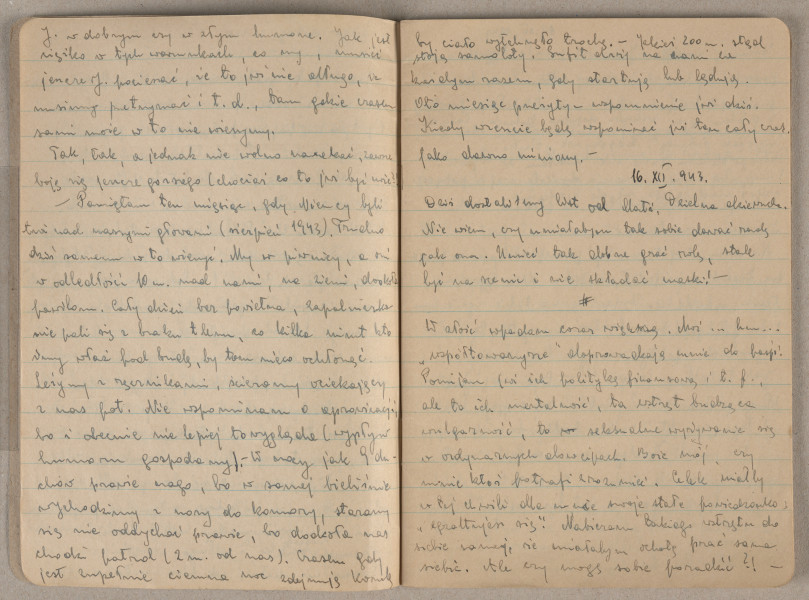 J. w dobrym czy w złym humorze. Jak jest
ciężko w tych warunkach, co my, musieć
jeszcze J. pocieszać, że to już nie długo, że
musimy przetrzymać i t. d., tam gdzie czasem
sami może w to nie wierzymy.
Tak, tak, a jednak nie wolno narzekać, zawsze
boję się jeszcze gorszego (chociaż co to już być może?!
— Pamiętam ten miesiąc, gdy Niemcy byli
tuż nad naszymi głowami (sierpień 1943). Trudno
dziś samemu w to wierzyć. My w piwnicy, a oni
w odległości 10 m. nad nami, na ziemi, dookoła
pawilonu. Cały dzień bez powietrza, zapalniczka
nie pali się z braku tlenu, co kilka minut kto
inny właź pod budę, by tam nieco ochłonąć.
Leżymy z ręcznikami, ścieramy ociekający
z nas pot. Nie wspominam o aprowizacji,
bo i obecnie nie lepiej to wygląda (wypływ
humoru gospodarzy). — W nocy jak 9 du-
chów prawie nago, bo w samej bieliźnie
wychodzimy z nory do komory, staramy
się nie oddychać prawie, bo dookoła nas
chodzi patrol (2 m. od nas). Czasem gdy
jest zupełnie ciemna noc zdejmują koszulę
by ciało wytchnęło trochę. — Jakieś 200 m. stąd
stoją samoloty. Sufit drży na nami za
każdym razem, gdy startują lub lądują.
Oto miesiąc przeżytych wspomnienie już dziś.
Kiedy wreszcie będę wspominać już ten cały czas,
jako dawno miniony. —
16. XII. 943.
Dziś dostaliśmy list od Mati. Dzielna dziewucha.
Nie wiem, czy umiałabym tak sobie dawać radę
jak ona. Umieć tak dobrze grać rolę, stale
być na scenie i nie składać maski! —
#
W złość wpadam coraz większą. Moi ... hm...
„współtowarzysze” doprowadzają mnie do pasji!
Pomijam już ich politykę finansową i t. p.,
ale ta ich mentalność, ta wstręt budząca
wulgarność, to seksualne wyżywanie się
w ordynarnych dowcipach. Boże mój, czy
mnie ktoś potrafi zrozumieć. Celek miałby
w tej chwili dla mnie swoje stałe powiedzonko:
„egzaltujesz się”. Nabieram takiego wstrętu do
siebie samej, że miałabym ochotę prać sama
siebie. Ale czy mogę sobie poradzić?! —